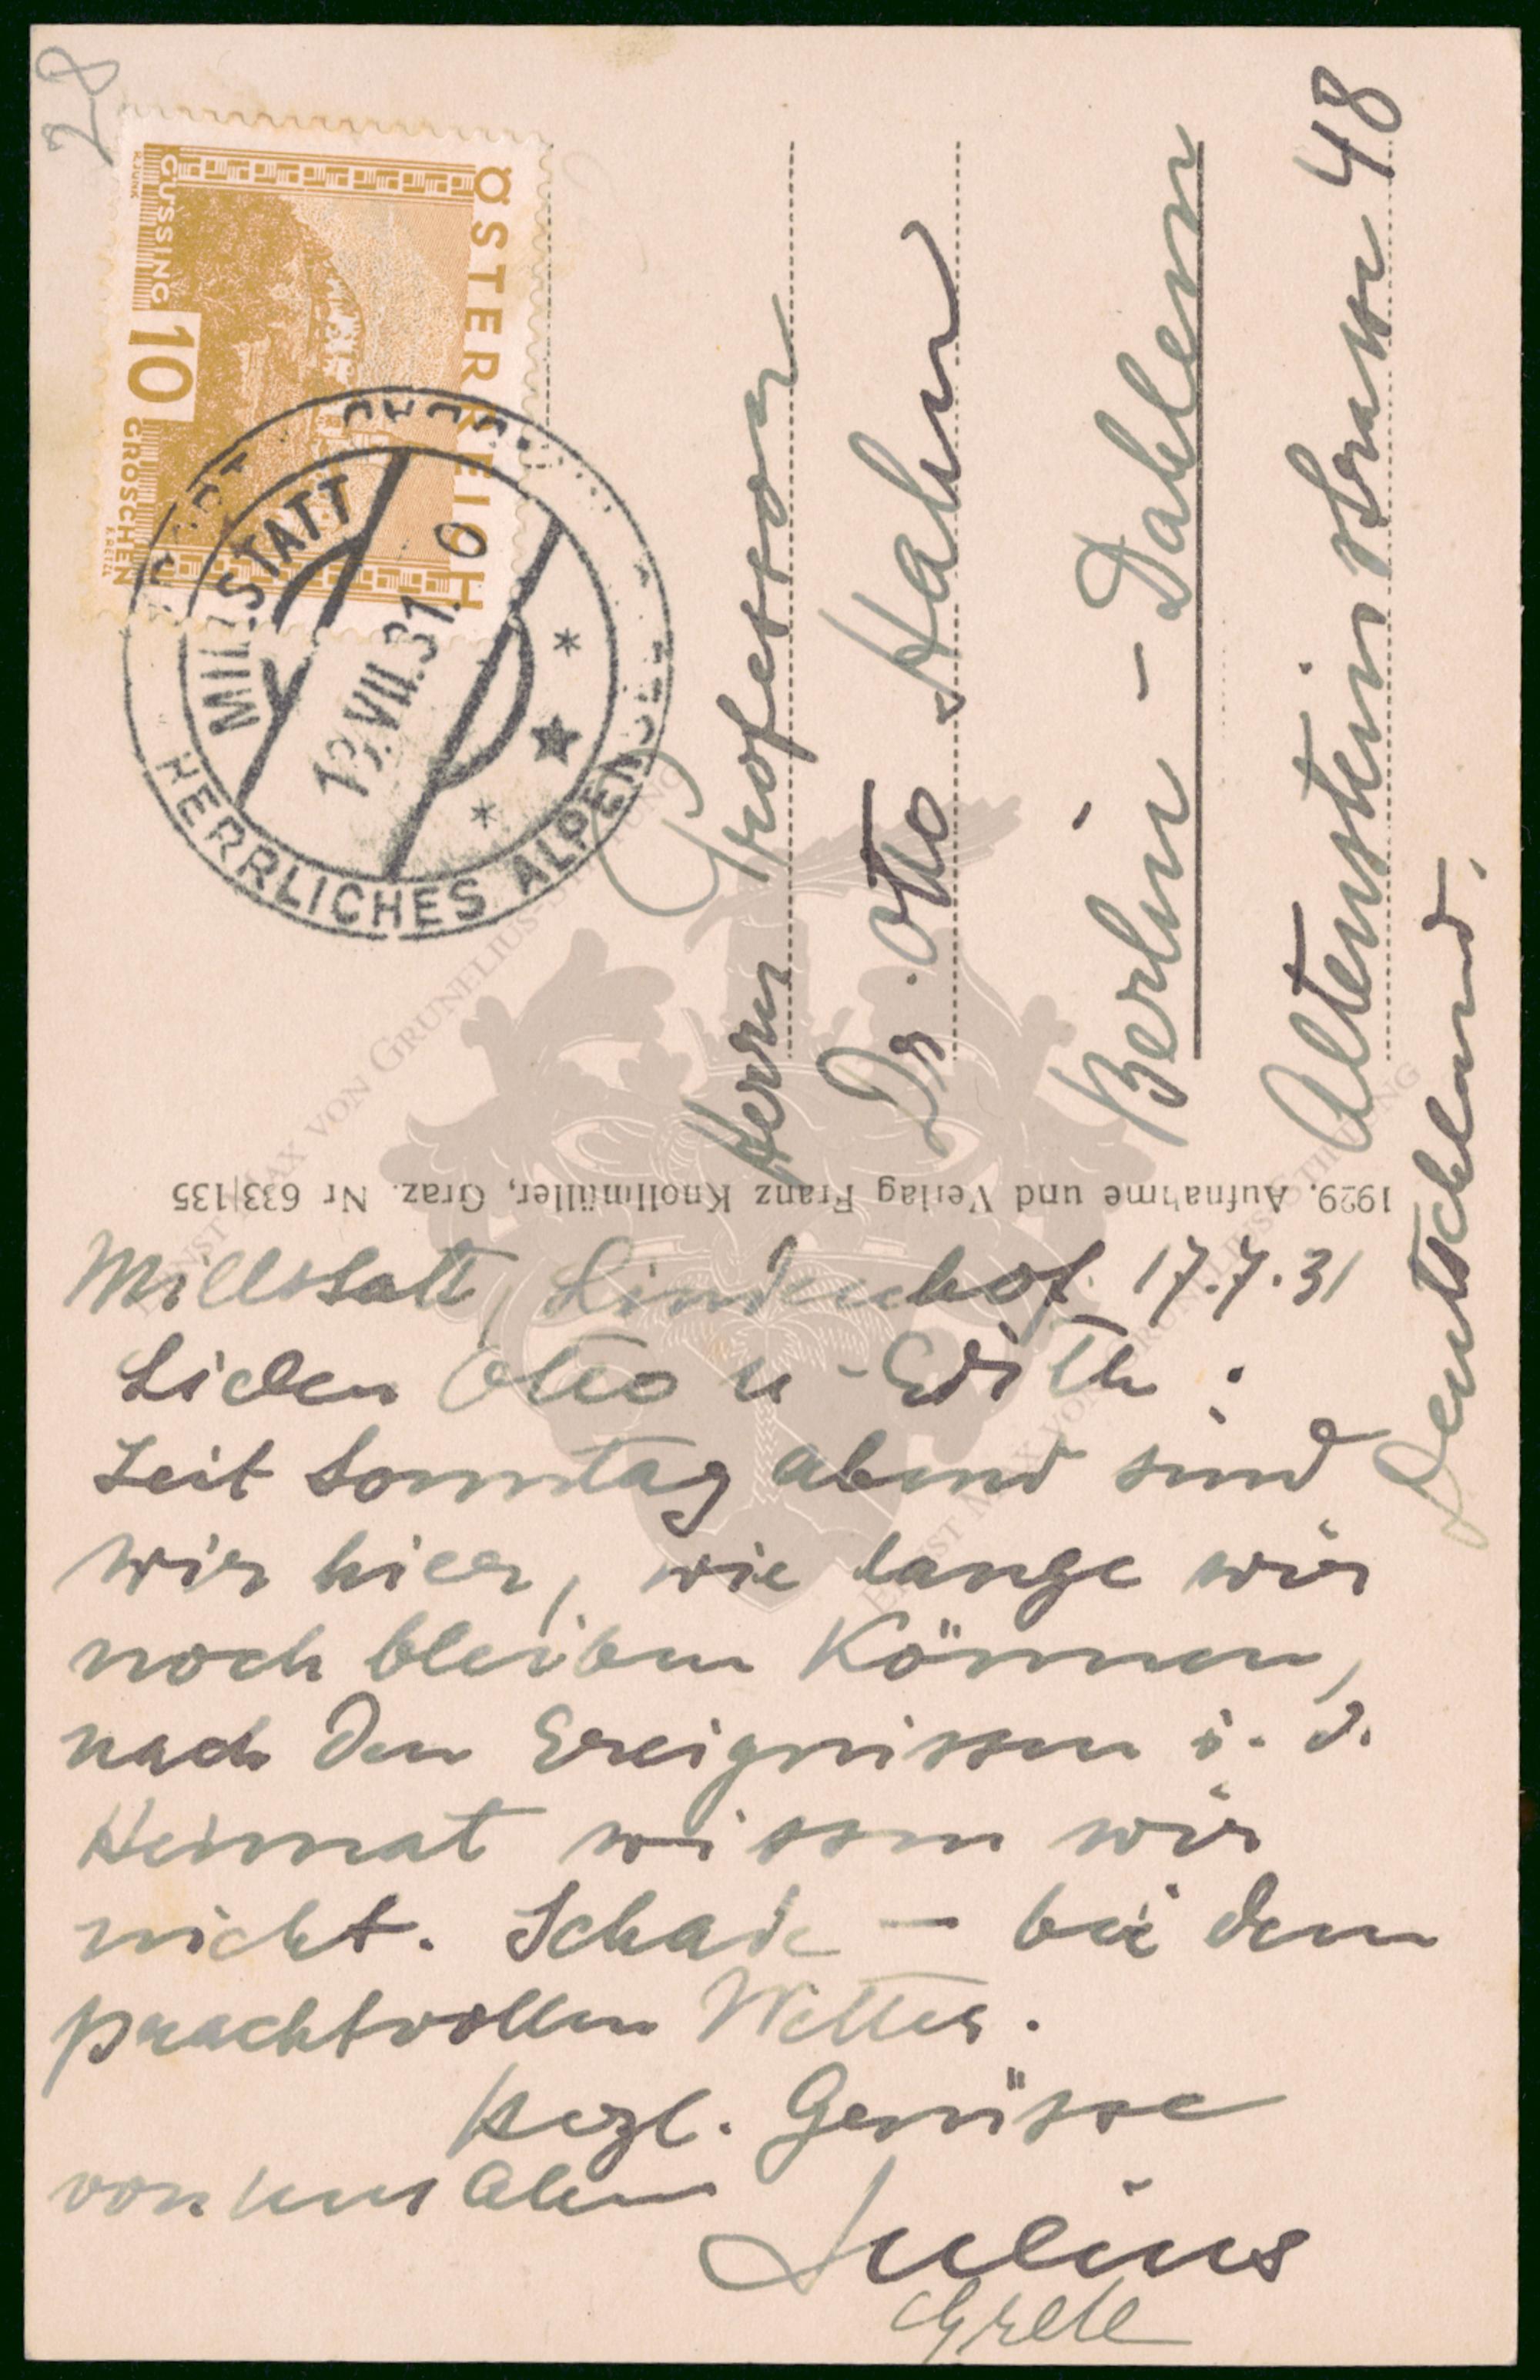 28
ÖSTERREICH
GÜSSING
10
GROSCHEN
MILLSTATT
18.VII.31
HERRLICHES ALPENSEE
Herrn Professor
Dr. Otto Hahn
Berlin - Dahlem
Altensteinstrasse 48
Deutschland.
1929. Aufnahme und Verlag Franz Knollmüller, Graz. Nr 633/135
Millstatt, Lindenhof, 17.7.31
Lieber Otto u. Edith:
Seit Sonntag abend sind
wir hier, wie lange wir
noch bleiben können,
nach den Ereignissen i. d.
Heimat wissen wir
nicht. Schade - bei dem
prachtvollen Wetter.
Herzl. Grüsse
von uns allen
Julius
Grete
ERNST MAX VON GRUNELIUS-STIFTUNG
ERNST MAX VON GRUNELIUS-STIFTUNG